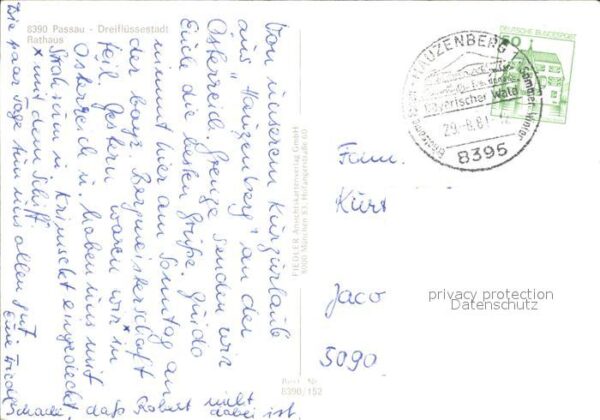 8390 Passau - Dreiflüssestadt
Rathaus
Von unserem Kurzurlaub
aus "Hauzenberg" an der
Österreich. Grenze senden wir
Euch die besten Grüße. Guido
nimmt hier am Sonntag an
der bayr. Bergmeisterschaft
teil. Gestern waren wir in
Österreich u. haben uns mit
Stroh rum u. eingedeckt.
x mit dem Schiff
Die paar Tage tun uns allen gut
Eure
Schade, daß Robert nicht dabei ist.
FIEDLER Ansichtskartenverlag GmbH
Best. Nr.
8390/152
HAUZENBERG
Bayerischer Wald
Sommer Winter
29.-8.81
8395
DEUTSCHE BUNDESPOST
Fam.
Kurt
Jaco
5090
privacy protection
Datenschutz